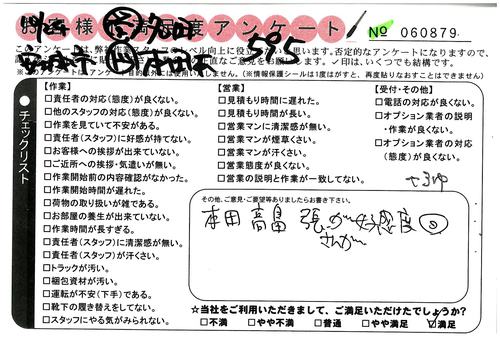 お客様満足度アンケート
No 060879
595
このアンケートは、弊社作業スタッフのレベル向上に役立
思います。否定的なアンケートになりますので、
正直なご意見をお願いします。✓印は、いくつでも結構です。
※このアンケートはアンケート目的以外には使用いたしません。(※情報保護シールは1度はがすと、再度貼りなおすことはできません)
チェックリスト
【作業】
□責任者の対応(態度)が良くない。
□他のスタッフの対応(態度)が良くない。
□作業を見ていて不安がある。
□責任者(スタッフ)に好感が持てない。
□お客様への挨拶が出来ていない。
□ご近所への挨拶・気遣いが無い。
□作業開始前の内容確認がなかった。
□作業開始時間が遅れた。
□荷物の取り扱いが雑である。
□お部屋の養生が出来ていない。
□作業時間が長すぎる。
□責任者(スタッフ)に清潔感が無い。
□責任者(スタッフ)が汗くさい。
□トラックが汚い。
□梱包資材が汚い。
□運転が不安(下手)である。
□靴下の履き替えをしてない。
□スタッフにやる気がみられない。
【営業】
□見積もり時間に遅れた。
□見積もり時間が長い。
□営業マンに清潔感が無い。
□営業マンが煙草くさい。
□営業マンが汗くさい。
□営業態度が良くない。
□営業の説明と作業が一致してない。
【受付・その他】
□電話の対応が良くない。
□オプション業者の説明
・作業が良くない。
□オプション業者の対応
(態度)が良くない。
その他、ご意見・ご要望等ありましたらお書き下さい。
本田 高畠 張さんが好感度◎
☆当社をご利用いただきまして、ご満足いただけたでしょうか?
□不満 □やや不満 □普通 □やや満足 ☑満足